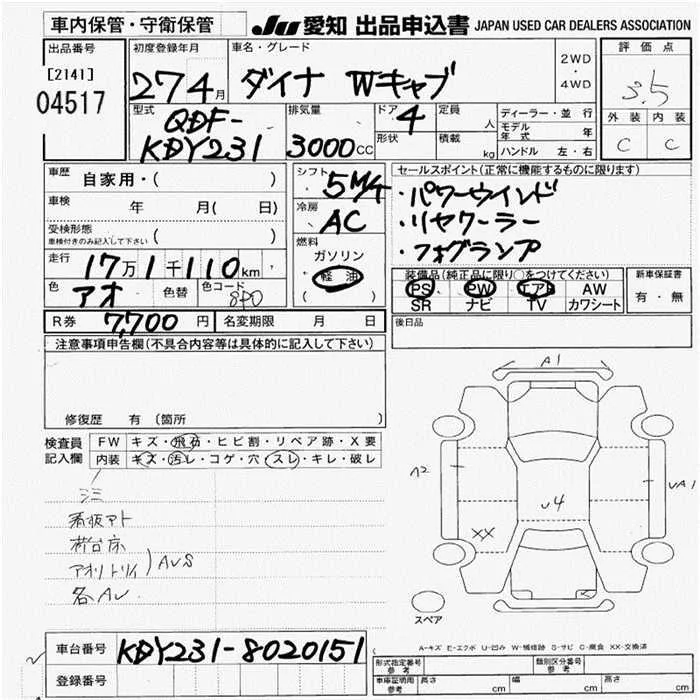 車内保管・守衛保管
JU 愛知 出品申込書 JAPAN USED CAR DEALERS ASSOCIATION
出品番号
[2141]
04517
初度登録年月
27 4月
車名・グレード
ダイナ Wキャブ
2WD
・
4WD
評価点
3.5
外装 内装
C C
型式
QDF-
KDY231
排気量
3000cc
ドア
4
形状
定員
人
積載
kg
ディーラー・並行
モデル年式 年
ハンドル 左・右
車歴
自家用・( )
車検
年 月( 日)
受検形態
車検付きのみ記入して下さい ( )
走行
17万1千110km
色
アオ
色替
色コード
8P0
シフト
5MT
冷房
AC
燃料
ガソリン
軽油
( )
セールスポイント(正常に機能するものに限ります)
・パワーウインド
・リヤクーラー
・フォグランプ
装備品(純正品に限り○をつけてください)
PS PW エアB AW
SR ナビ TV カワシート
新車保証書
有・無
R券 7,700円 名変期限 月 日
後日品
注意事項申告欄(不具合内容等は具体的に記入して下さい)
修復歴 有 (箇所 )
検査員
記入欄
FW キズ・飛石・ヒビ割・リペア跡・X要
内装 キズ・汚レ・コゲ・穴 スレ・キレ・破レ
看板アト
荷台床
アオリトリイ) AUS
各AU
A1
A2
U4
UA1
XX
スペア
A-キズ E-エクボ U-凹み W-補修跡 S-サビ C-腐食 XX-交換済
車台番号 KDY231-8020151
登録番号
形式指定番号
参考
類別区分番号
参考
車庫証明用
参考
長さ cm 幅 cm 高さ cm